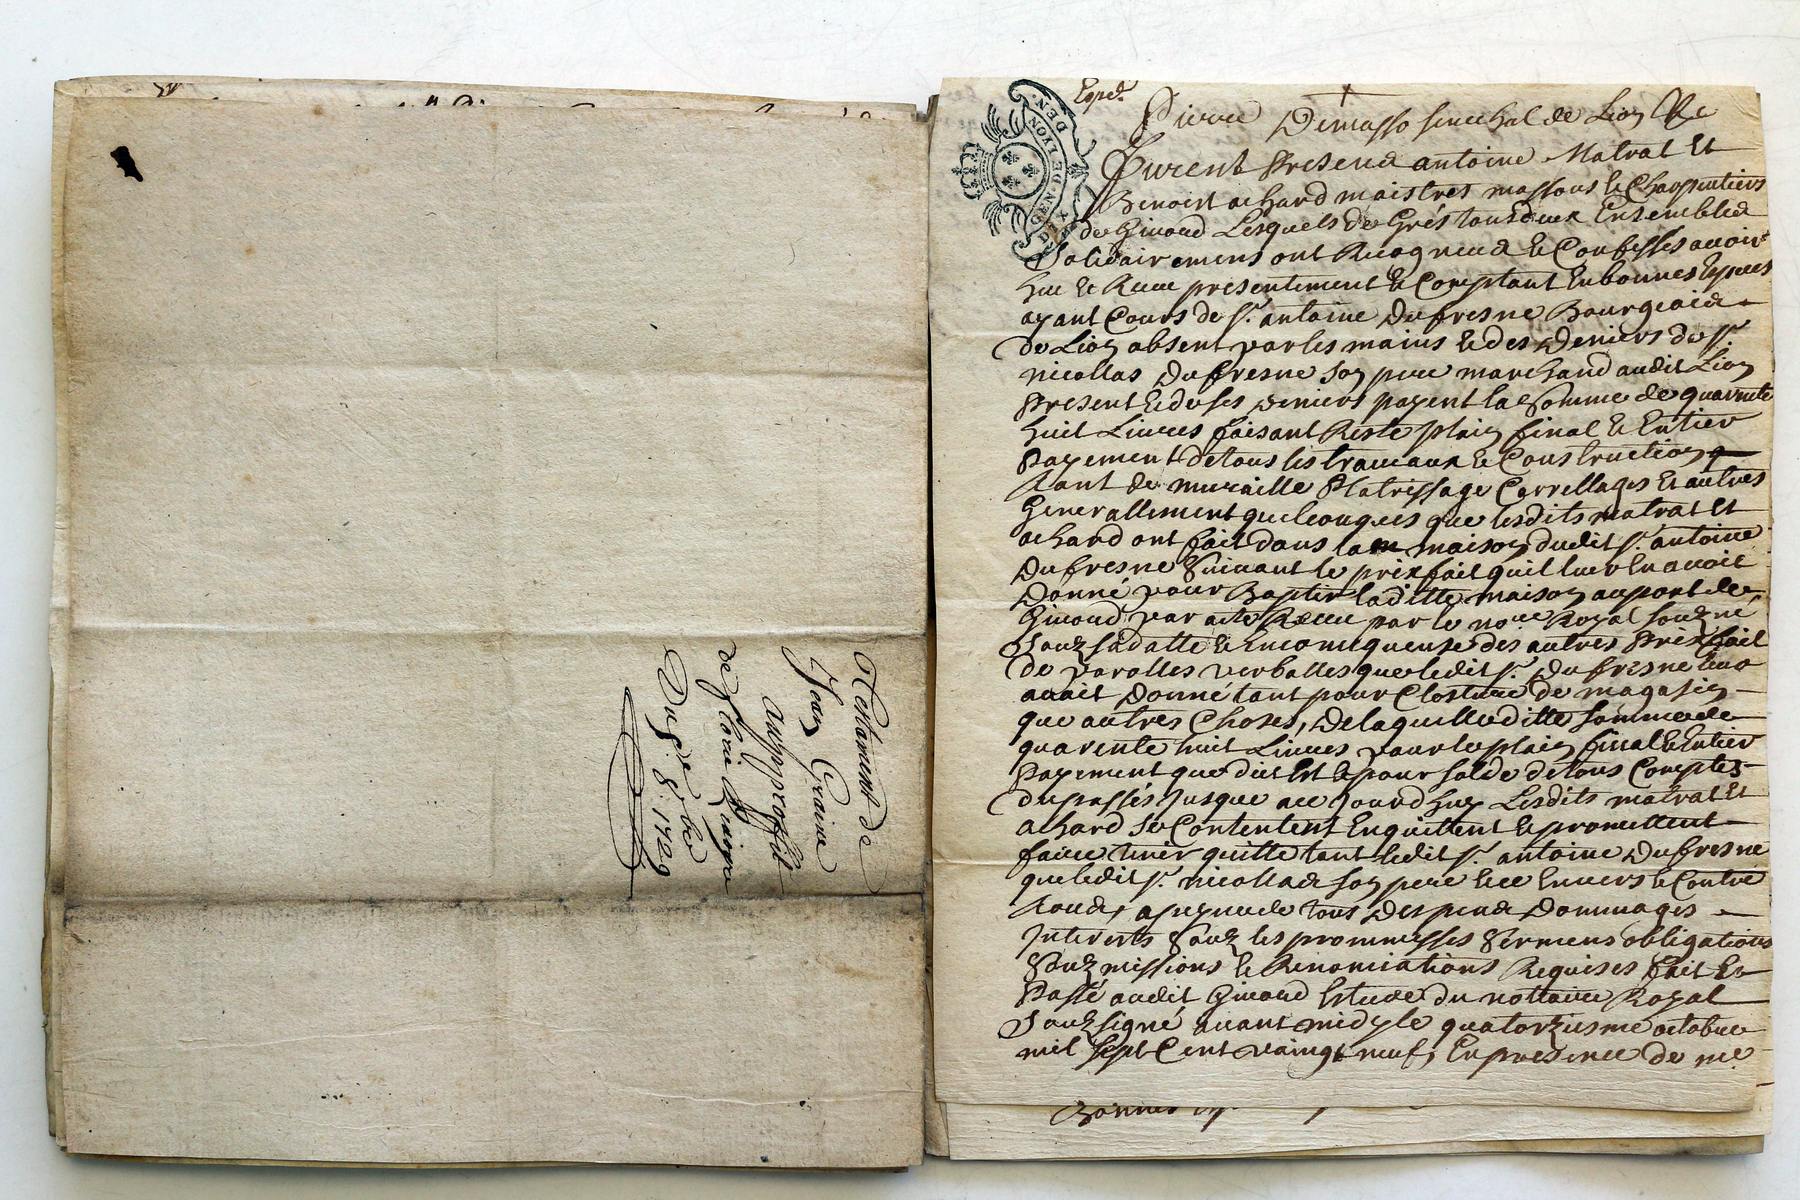 Testament de
Jean Graine
au proffit
de
Du 8e 1729
GEN. DE LYON
DEN.
DIX
Expe.
Pierre Demasso senechal de Lion &c
Furent Presens antoine Matrat Et
Benoist achard maistres massons & Charpentiers
de Givord Lesquels de Grés tous deux Ensembles
Solidairement ont Recogneus & Confesses avoir
hue Et Receu presentement & Comptant En bonnes Especes
ayant Cours de Sr. antoine Dufresne Bourgeois
de Lion absent par les mains & des Deniers de Sr.
nicollas Dufresne son pere marchand audit Lion
Present & de ses deniers payent la somme de quarente
huit Livres faisant Reste plain final & Entier
Payement de tous les travaux & Construction
tant de muraille Platrissage Carrellages Et autres
Generallement quelconques que lesdits matrat Et
achard ont fait dans la maison dudit Sr. antoine
Dufresne Suivant le prix fait quil leur En avoit
Donné pour Baptir laditte maison au port de
Givord par acte Receu par le nore Royal souzne
Souz sa datte & En consequense des autres Prix fait
de parolles verballes que ledit Sr. Dufresne leur
avait Donné tant pour Closture de magasin
que autres Choses, De laquelle ditte somme de
quarente huit Livres pour le plain final & Entier
Payement que dict Est & pour solde de tous Comptes
du passés Jusque a ce Jourdhuy Lesdits matrat Et
achard se Contentent Enquittent & promettent
faire tenir quitte tant ledit Sr. antoine Dufresne
que ledit Sr. nicollas son pere Envers & Contre
tous, a peyne de tous Despens Dommages
Interests Souz les prommesses Sermens obligations
Souzmissions & Renonciations Requises fait Et
Passé audit Givord Estude du nottaire Royal
Souzsigné avant midy le quatorziesme octobre
mil sept Cent vaingt neuf, En presence de me